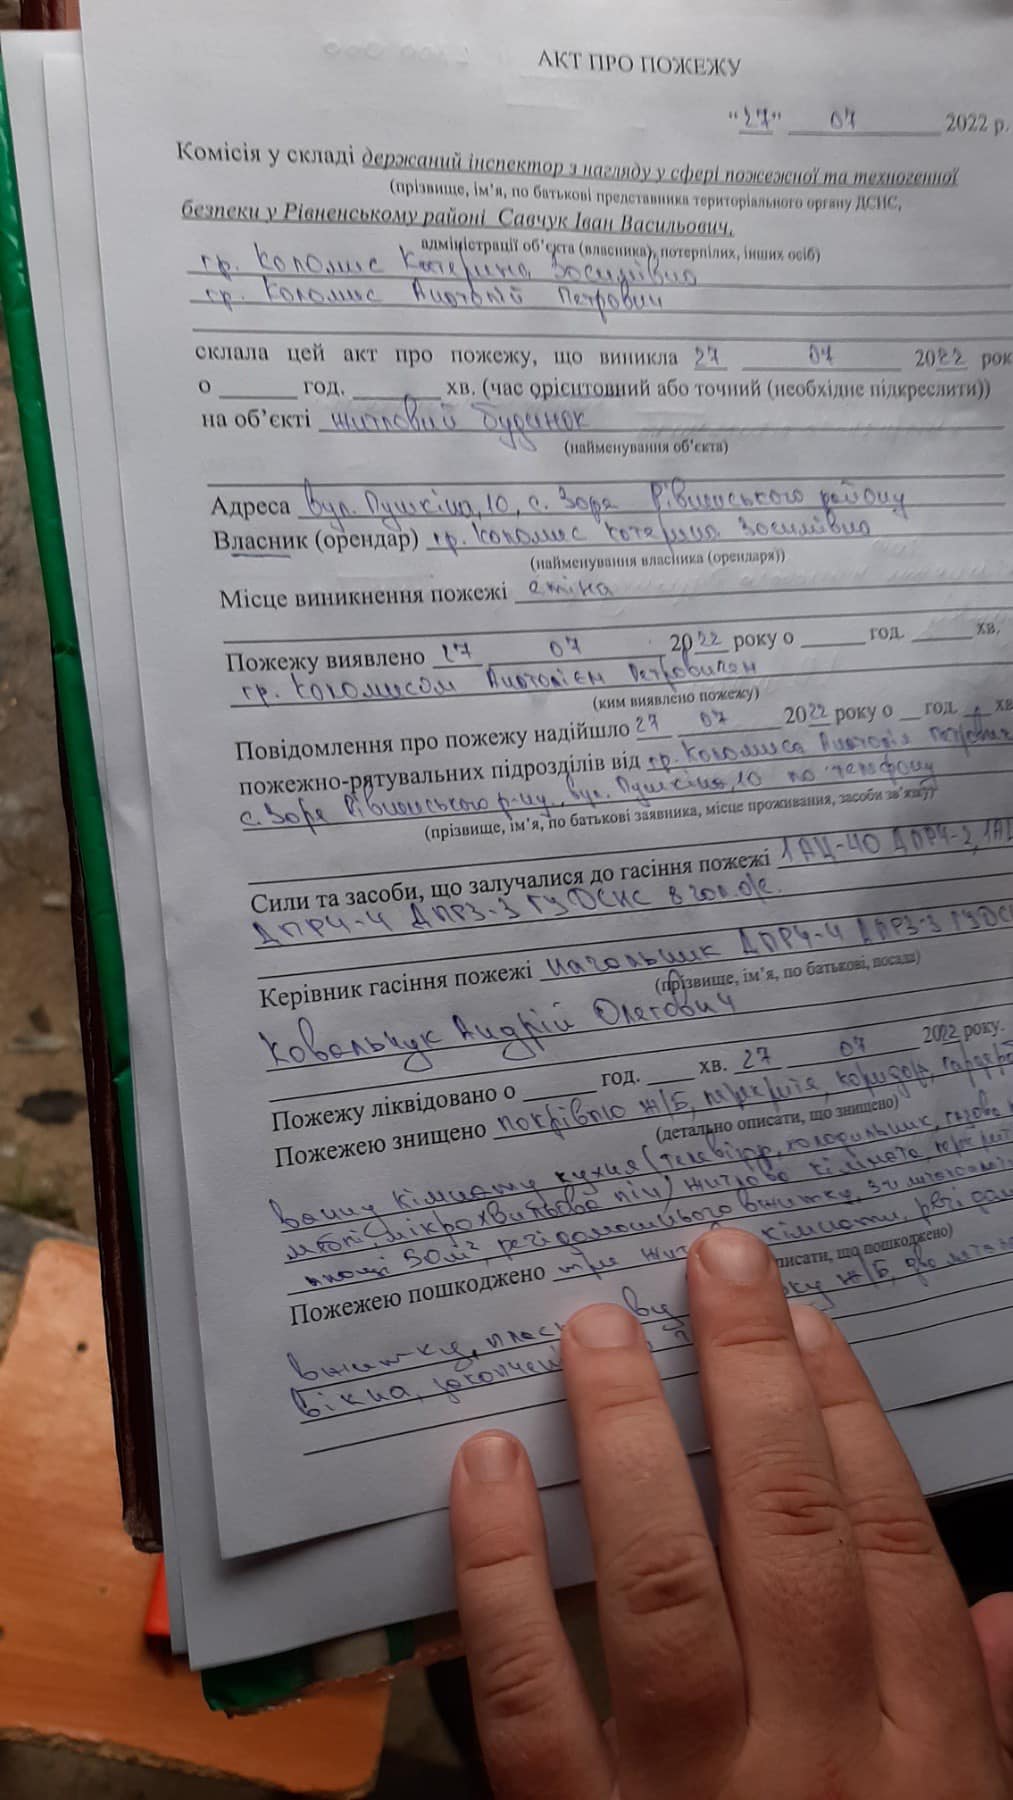 АКТ ПРО ПОЖЕЖУ
"27" 07 2022 р.
Комісія у складі держаний інспектор з нагляду у сфері пожежної та техногенної
(прізвище, ім'я, по батькові представника територіального органу ДСНС,
безпеки у Рівненському районі Савчук Іван Васильович,
адміністрації об'єкта (власника), потерпілих, інших осіб)
гр. Коломис Катерина Зосимівна
гр. Коломис Анатолій Петрович
склала цей акт про пожежу, що виникла 27 07 2022 рок
о ______ год. ______ хв. (час орієнтовний або точний (необхідне підкреслити))
на об'єкті житловий будинок
(найменування об'єкта)
Адреса вул. Пушкіна, 10, с. Зоря Рівненського району
Власник (орендар) гр. Коломис Катерина Зосимівна
(найменування власника (орендаря))
Місце виникнення пожежі стіна
Пожежу виявлено 27 07 2022 року о _____ год. _____ хв.
гр. Коломисом Анатолієм Петровичем
(ким виявлено пожежу)
Повідомлення про пожежу надійшло 27 07 2022 року о __ год. __ хв
пожежно-рятувальних підрозділів від гр. Коломиса Анатолія Петрович
с. Зоря Рівненського р-ну, вул. Пушкіна, 10 по телефону
(прізвище, ім'я, по батькові заявника, місце проживання, засоби зв'язку)
Сили та засоби, що залучалися до гасіння пожежі 1АЦ-40 ДПРЧ-2, 1АЦ
ДПРЧ-4 ДПРЗ-3 ГУ ДСНС
Керівник гасіння пожежі начальник ДПРЧ-4 ДПРЗ-3 ГУ ДСН
(прізвище, ім'я, по батькові, посада)
Ковальчук Андрій Олегович
Пожежу ліквідовано о _____ год. ____ хв. 27 07 2022 року.
Пожежею знищено покрівлю ж/б, перекриття, коридор, гардероб
(детально описати, що знищено)
ванну кімнату кухня (телевізор, холодильник, газова
меблі, мікрохвильова піч) житлова кімната,
площі 50м², речі домашнього вжитку,
Пожежею пошкоджено три кімнати, речі дом
писати, що пошкоджено)
вжитку, ж/б, два
вікна,